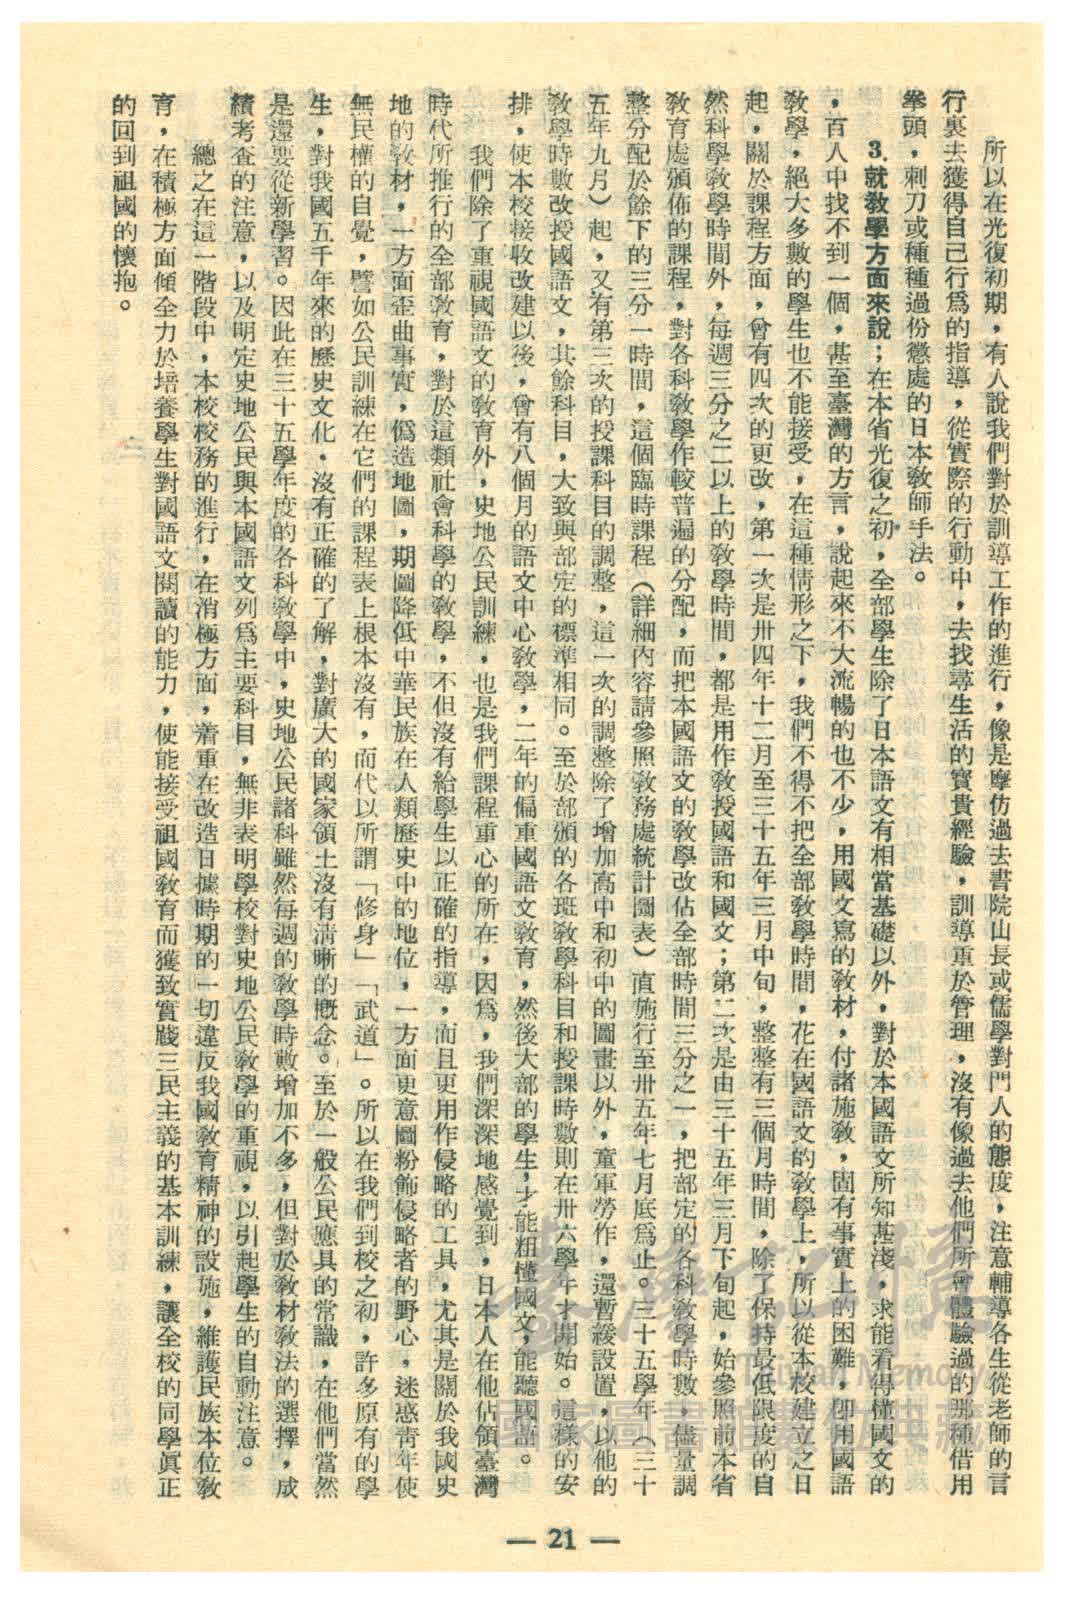 所以在光復初期，有人說我們對於訓導工作的進行，像是摩仿過去書院山長或儒學對門人的態度，注意輔導各生從老師的言
行裏去獲得自己行爲的指導，從實際的行動中，去找尋生活的寳貴經驗，訓導重於管理，沒有像過去他們所會體驗過的那種借用
拳頭，刺刀或種種過份懲處的日本教師手法。
3．就教學方面來說；在本省光復之初，全部學生除了日本語文有相當基礎以外，對於本國語文所知甚淺，求能看得懂國文的
，百人中找不到一個，甚至臺灣的方言，說起來不大流暢的也不少，用國文寫的教材，付諸施教，固有事實上的困難，卽用國語
教學，絕大多數的學生也不能接受，在這種情形之下，我們不得不把全部教學時間，花在國語文的教學上，所以從本校建立之日
起，關於課程方面，會有四次的更改，第一次是卅四年十二月至三十五年三月中旬，整整有三個月時間，除了保持最低限度的自
然科學教學時間外，每週三分之二以上的教學時間，都是用作教授國語和國文；第二次是由三十五年三月下旬起，始參照前本省
教育處頒佈的課程，對各科教學作較普遍的分配，而把本國語文的教學改佔全部時間三分之一，把部定的各科教學時數，儘量調
整分配於餘下的三分一時間，這個臨時課程（詳細內容請參照教務處統計圖表）直施行至卅五年七月底爲止。三十五學年（三十
五年九月）起，又有第三次的授課科目的調整，這一次的調整除了增加高中和初中的圖畫以外，童軍勞作，還暫緩設置，以他的
教學時數改授國語文，其餘科目，大致與部定的標準相同。至於部頒的各班教學科目和授課時數則在卅六學年才開始。這樣的安
排，使本校接收改建以後，會有八個月的語文中心教學，二年的偏重國語文教育，然後大部的學生，才能粗懂國文，能聽國語。
我們除了重視國語文的教育外，史地公民訓練，也是我們課程重心的所在，因爲，我們深深地感覺到，日本人在他佔領臺灣
時代所推行的全部教育，對於這類社會科學的教學，不但沒有給學生以正確的指導，而且更用作侵略的工具，尤其是關於我國史
地的教材，一方面歪曲事實，僞造地圖，期圖降低中華民族在人類歷史中的地位，一方面更意圖粉飾侵略者的野心，迷惑靑年使
無民權的自覺，譬如公民訓練在它們的課程表上根本沒有，而代以所謂「修身」「武道」。所以在我們到校之初，許多原有的學
生，對我國五千年來的歷史文化．沒有正確的了解，對廣大的國家領土沒有清晰的概念。至於一般公民應具的常識，在他們當然
是還要從新學習。因此在三十五學年度的各科教學中，史地公民諸科雖然每週的教學時數增加不多，但對於教材教法的選擇，成
績考查的注意，以及明定史地公民與本國語文列爲主要科目，無非表明學校對史地公民教學的重視，以引起學生的自動注意。
總之在這一階段中，本校校務的進行，在消極方面，着重在改造日據時期的一切違反我國教育精神的設施，維護民族本位教
育，在積極方面傾全力於培養學生對國語文閱讀的能力，使能接受祖國教育而獲致實踐三民主義的基本訓練，讓全校的同學眞正
的回到祖國的懷抱。
— 21 —
臺灣記憶
Taiwan Memory
國家圖書館數位典藏